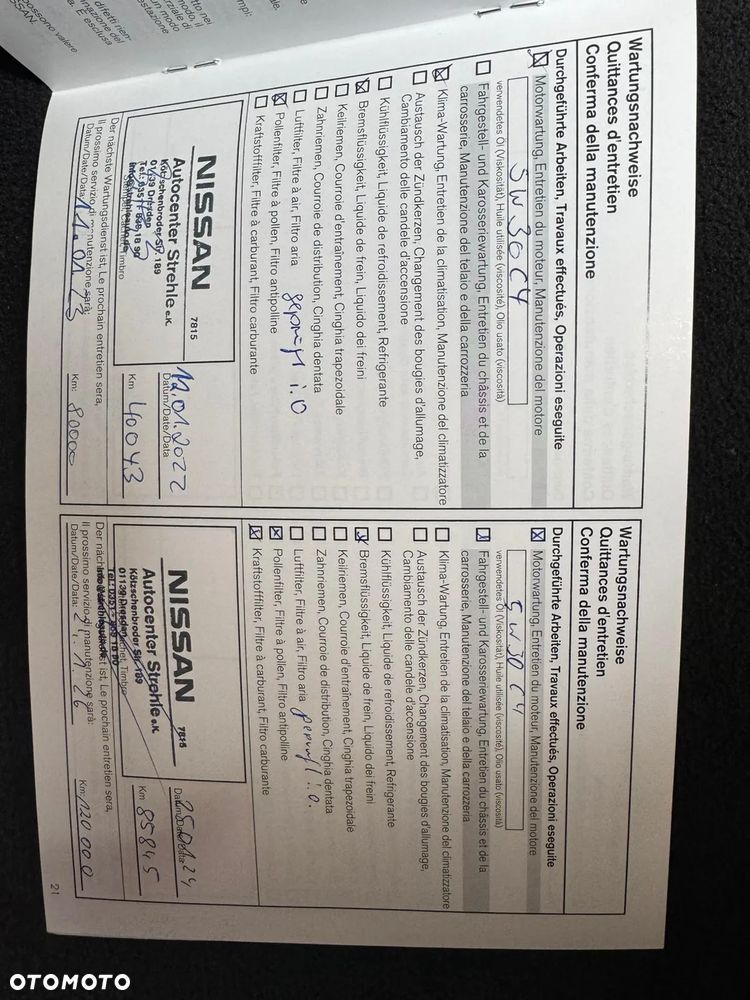 Wartungsnachweise
Quittances d'entretien
Conferma della manutenzione
Durchgeführte Arbeiten, Travaux effectués, Operazioni eseguite
Motorwartung, Entretien du moteur, Manutenzione del motore
5W30C4
verwendetes Öl (Viskosität), Huile utilisée (viscosité), Olio usato (viscosità)
Fahrgestell- und Karosseriewartung, Entretien du châssis et de la
carrosserie, Manutenzione del telaio e della carrozzeria
Klima-Wartung, Entretien de la climatisation, Manutenzione del climatizzatore
Austausch der Zündkerzen, Changement des bougies d'allumage,
Cambiamento delle candele d'accensione
Kühlflüssigkeit, Liquide de refroidissement, Refrigerante
Bremsflüssigkeit, Liquide de frein, Liquido dei freini
Keilriemen, Courroie d'entraînement, Cinghia trapezoidale
Zahnriemen, Courroie de distribution, Cinghia dentata
Luftfilter, Filtre à air, Filtro aria geprüft i.O
Pollenfilter, Filtre à pollen, Filtro antipolline
Kraftstofffilter, Filtre à carburant, Filtro carburante
NISSAN
7815
Autocenter Strehle e.K.
Kötzschenbroder Str. 189
01139 Dresden
12.01.2022
Datum/Date/Data
Km 40043
Der nächste Wartungsdienst ist, Le prochain entretien sera,
Il prossimo servizio di manutenzione sarà:
Datum/Date/Data: 11.01.23
Km: 80000
Wartungsnachweise
Quittances d'entretien
Conferma della manutenzione
Durchgeführte Arbeiten, Travaux effectués, Operazioni eseguite
Motorwartung, Entretien du moteur, Manutenzione del motore
5W30 C4
verwendetes Öl (Viskosität), Huile utilisée (viscosité), Olio usato (viscosità)
Fahrgestell- und Karosseriewartung, Entretien du châssis et de la
carrosserie, Manutenzione del telaio e della carrozzeria
Klima-Wartung, Entretien de la climatisation, Manutenzione del climatizzatore
Austausch der Zündkerzen, Changement des bougies d'allumage,
Cambiamento delle candele d'accensione
Kühlflüssigkeit, Liquide de refroidissement, Refrigerante
Bremsflüssigkeit, Liquide de frein, Liquido dei freini
Keilriemen, Courroie d'entraînement, Cinghia trapezoidale
Zahnriemen, Courroie de distribution, Cinghia dentata
Luftfilter, Filtre à air, Filtro aria geprüft i.o.
Pollenfilter, Filtre à pollen, Filtro antipolline
Kraftstofffilter, Filtre à carburant, Filtro carburante
NISSAN
7815
Autocenter Strehle e.K.
Kötzschenbroder Str. 189
01139 Dresden
Km 85845
Il prossimo servizio di manutenzione sarà:
Datum/Date/Data: 24.1.26
Km: 120000
21
OTOMOTO